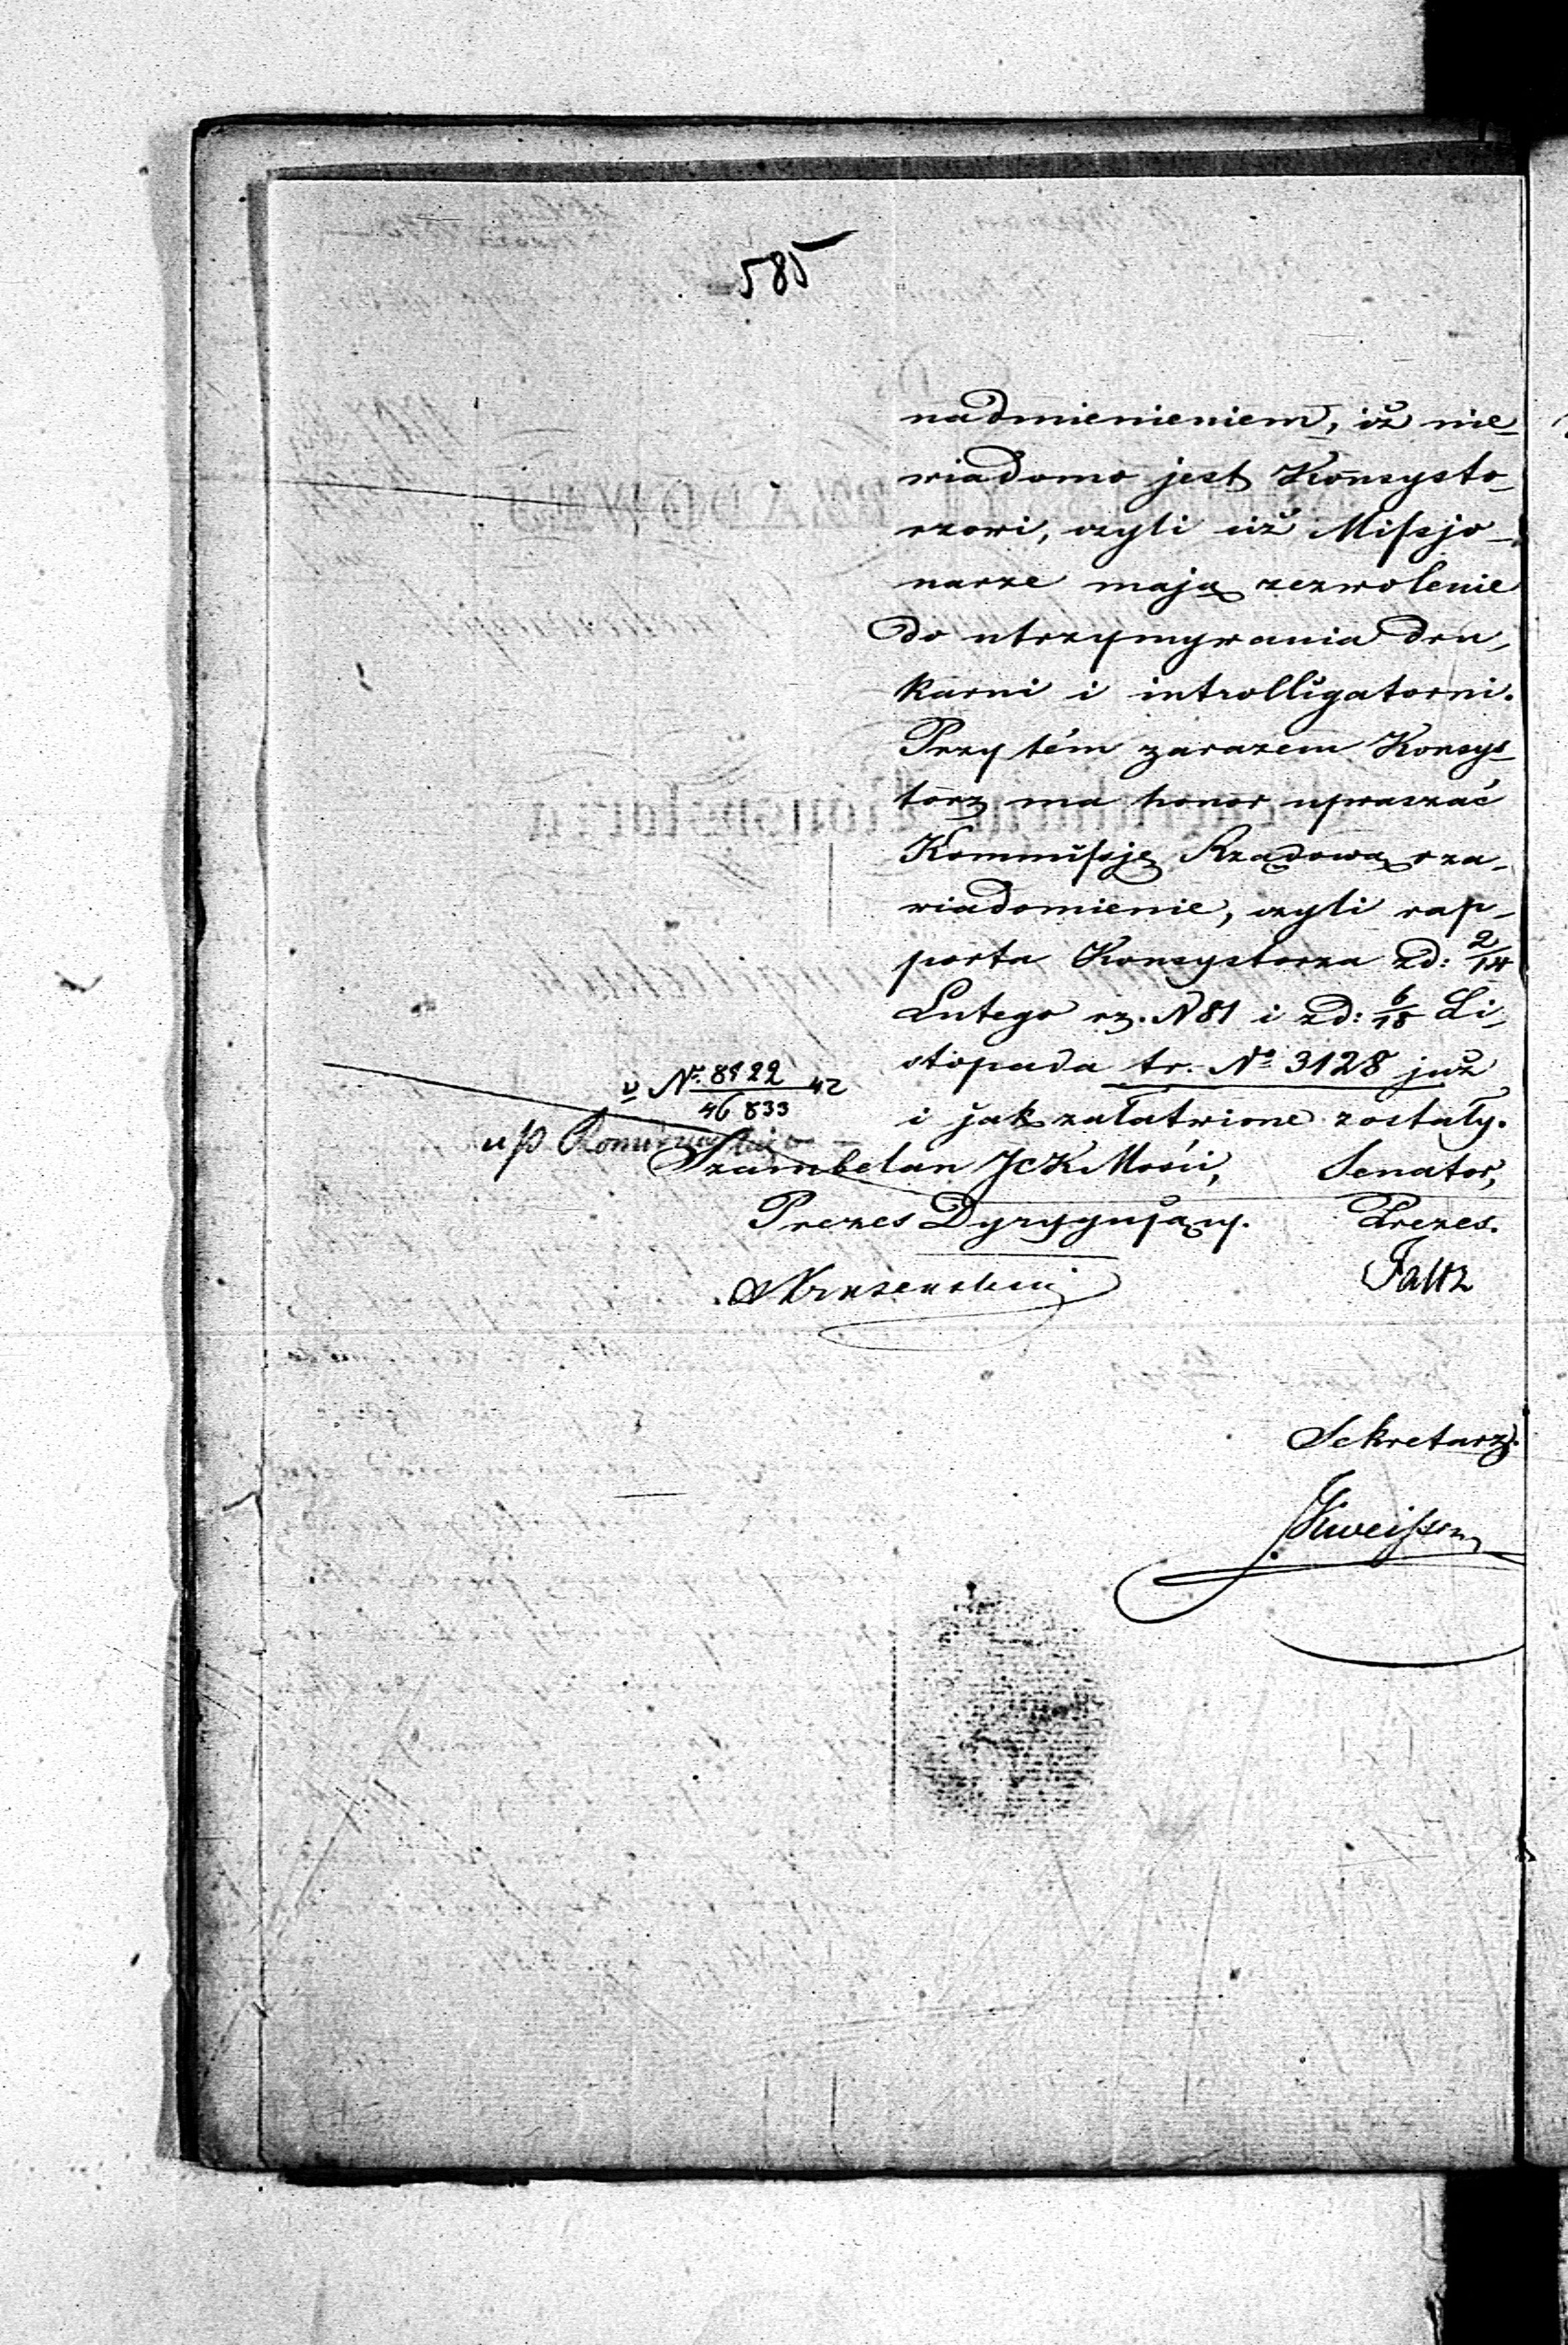 585
nadmienieniem, iż nie-
wiadomo jest Konsysto-
rzowi, czyli iiż Missjo-
narze mają zezwolenie
do utrzymywania dru-
karni i introlligatorni.
Przytém zarazem Konsys-
torz ma honor upraszać
Kommissję Rządową o za-
wiadomienie, czyli rap-
porta Konsystorza zd: 2/14
Lutego rz. N 81 i zd: 6/18 Li-
stopada tr. No 3128 już
i jak załatwione zostały.
u No. 8922/46833 42
u P
Szambelan JCKMości, Senator,
Prezes Dyrygujący. Prezes.
Kruzensztern Faltz
Sekretarz.